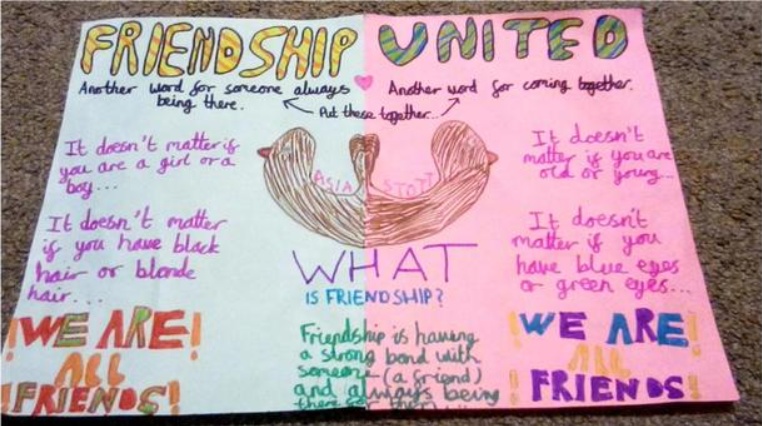 FRIENDSHIP UNITED
Another word for someone always
being there.
Another word for coming together.
Put these together...
It doesn't matter if
you are a girl or a
boy...
It doesn't
matter if you are
old or young...
ASIA STOTT
It doesn't matter
if you have black
hair or blonde
hair...
It doesn't
matter if you
have blue eyes
or green eyes...
WHAT
IS FRIENDSHIP?
Friendship is having
a strong bond with
someone (a friend)
and always being
there for them
!WE ARE!
ALL
!FRIENDS!
!WE ARE!
ALL
!FRIENDS!